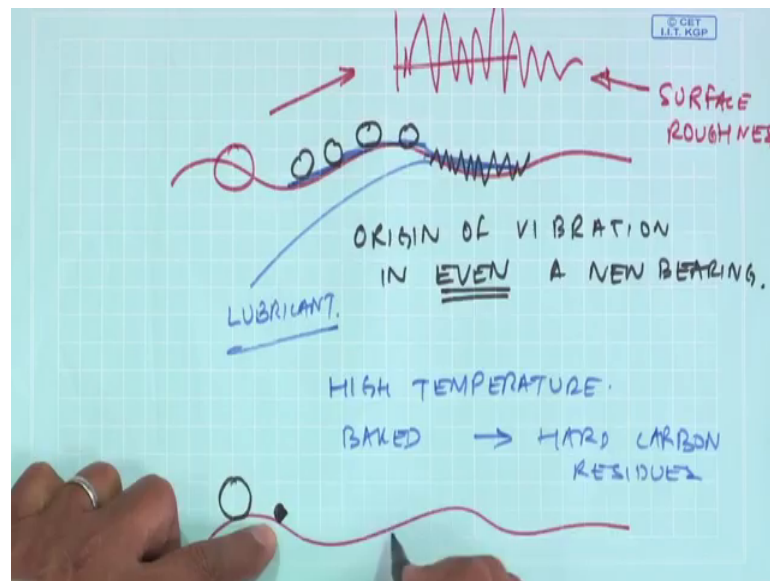 © CET
I.I.T. KGP
SURFACE
ROUGHNES
ORIGIN OF VIBRATION
IN EVEN A NEW BEARING.
LUBRICANT.
HIGH TEMPERATURE.
BAKED → HARD CARBON
RESIDUES